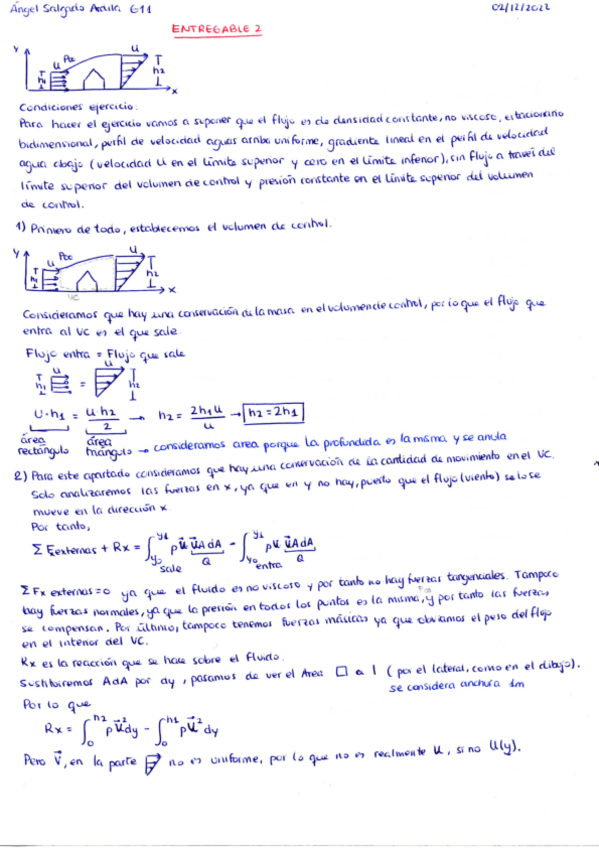 Ángel Salgado Ardila G11
02/12/2022
ENTREGABLE 2
y
u
P∞
u
h1
h2
x
Condiciones ejercicio:
Para hacer el ejercicio vamos a suponer que el flujo es de densidad constante, no viscoso, estacionario
bidimensional, perfil de velocidad aguas arriba uniforme, gradiente lineal en el perfil de velocidad
agua abajo (velocidad U en el límite superior y cero en el límite inferior), sin flujo a través del
límite superior del volumen de control y presión constante en el límite superior del volumen
de control.
1) Primero de todo, establecemos el volumen de control.
y
u
P∞
u
h1
h2
x
VC
Consideramos que hay una conservación de la masa en el volumen de control, por lo que el flujo que
entra al VC es el que sale.
Flujo entra = Flujo que sale
h1 u = u h2
U·h1 = u h2 / 2 → h2 = 2h1u / u → h2 = 2h1
área rectángulo
área triángulo → consideramos area porque la profundidad es la misma y se anula
2) Para este apartado consideramos que hay una conservación de la cantidad de movimiento en el VC.
Solo analizaremos las fuerzas en x, ya que en y no hay, puesto que el flujo (viento) se lo se
mueve en la dirección x.
Por tanto,
Σ Fexternas + Rx = ∫y0 y1 ρ u⃗ u⃗AdA − ∫y0 y1 ρu u⃗AdA
sale Q entra Q
ΣFx externas = 0 ya que el fluido es no viscoso y por tanto no hay fuerzas tangenciales. Tampoco
hay fuerzas normales, ya que la presión en todos los puntos es la misma, y por tanto las fuerzas
se compensan. Por último, tampoco tenemos fuerzas másicas ya que obviamos el peso del flujo
en el interior del VC.
Rx es la reacción que se hace sobre el fluido.
Sustituiremos AdA por dy, pasamos de ver el Area □ a | (por el lateral, como en el dibujo).
se considera anchura 1m
Por lo que
Rx = ∫0 h2 ρu⃗²dy − ∫0 h1 ρu⃗²dy
Pero V⃗, en la parte no es uniforme, por lo que no es realmente u, si no U(y).